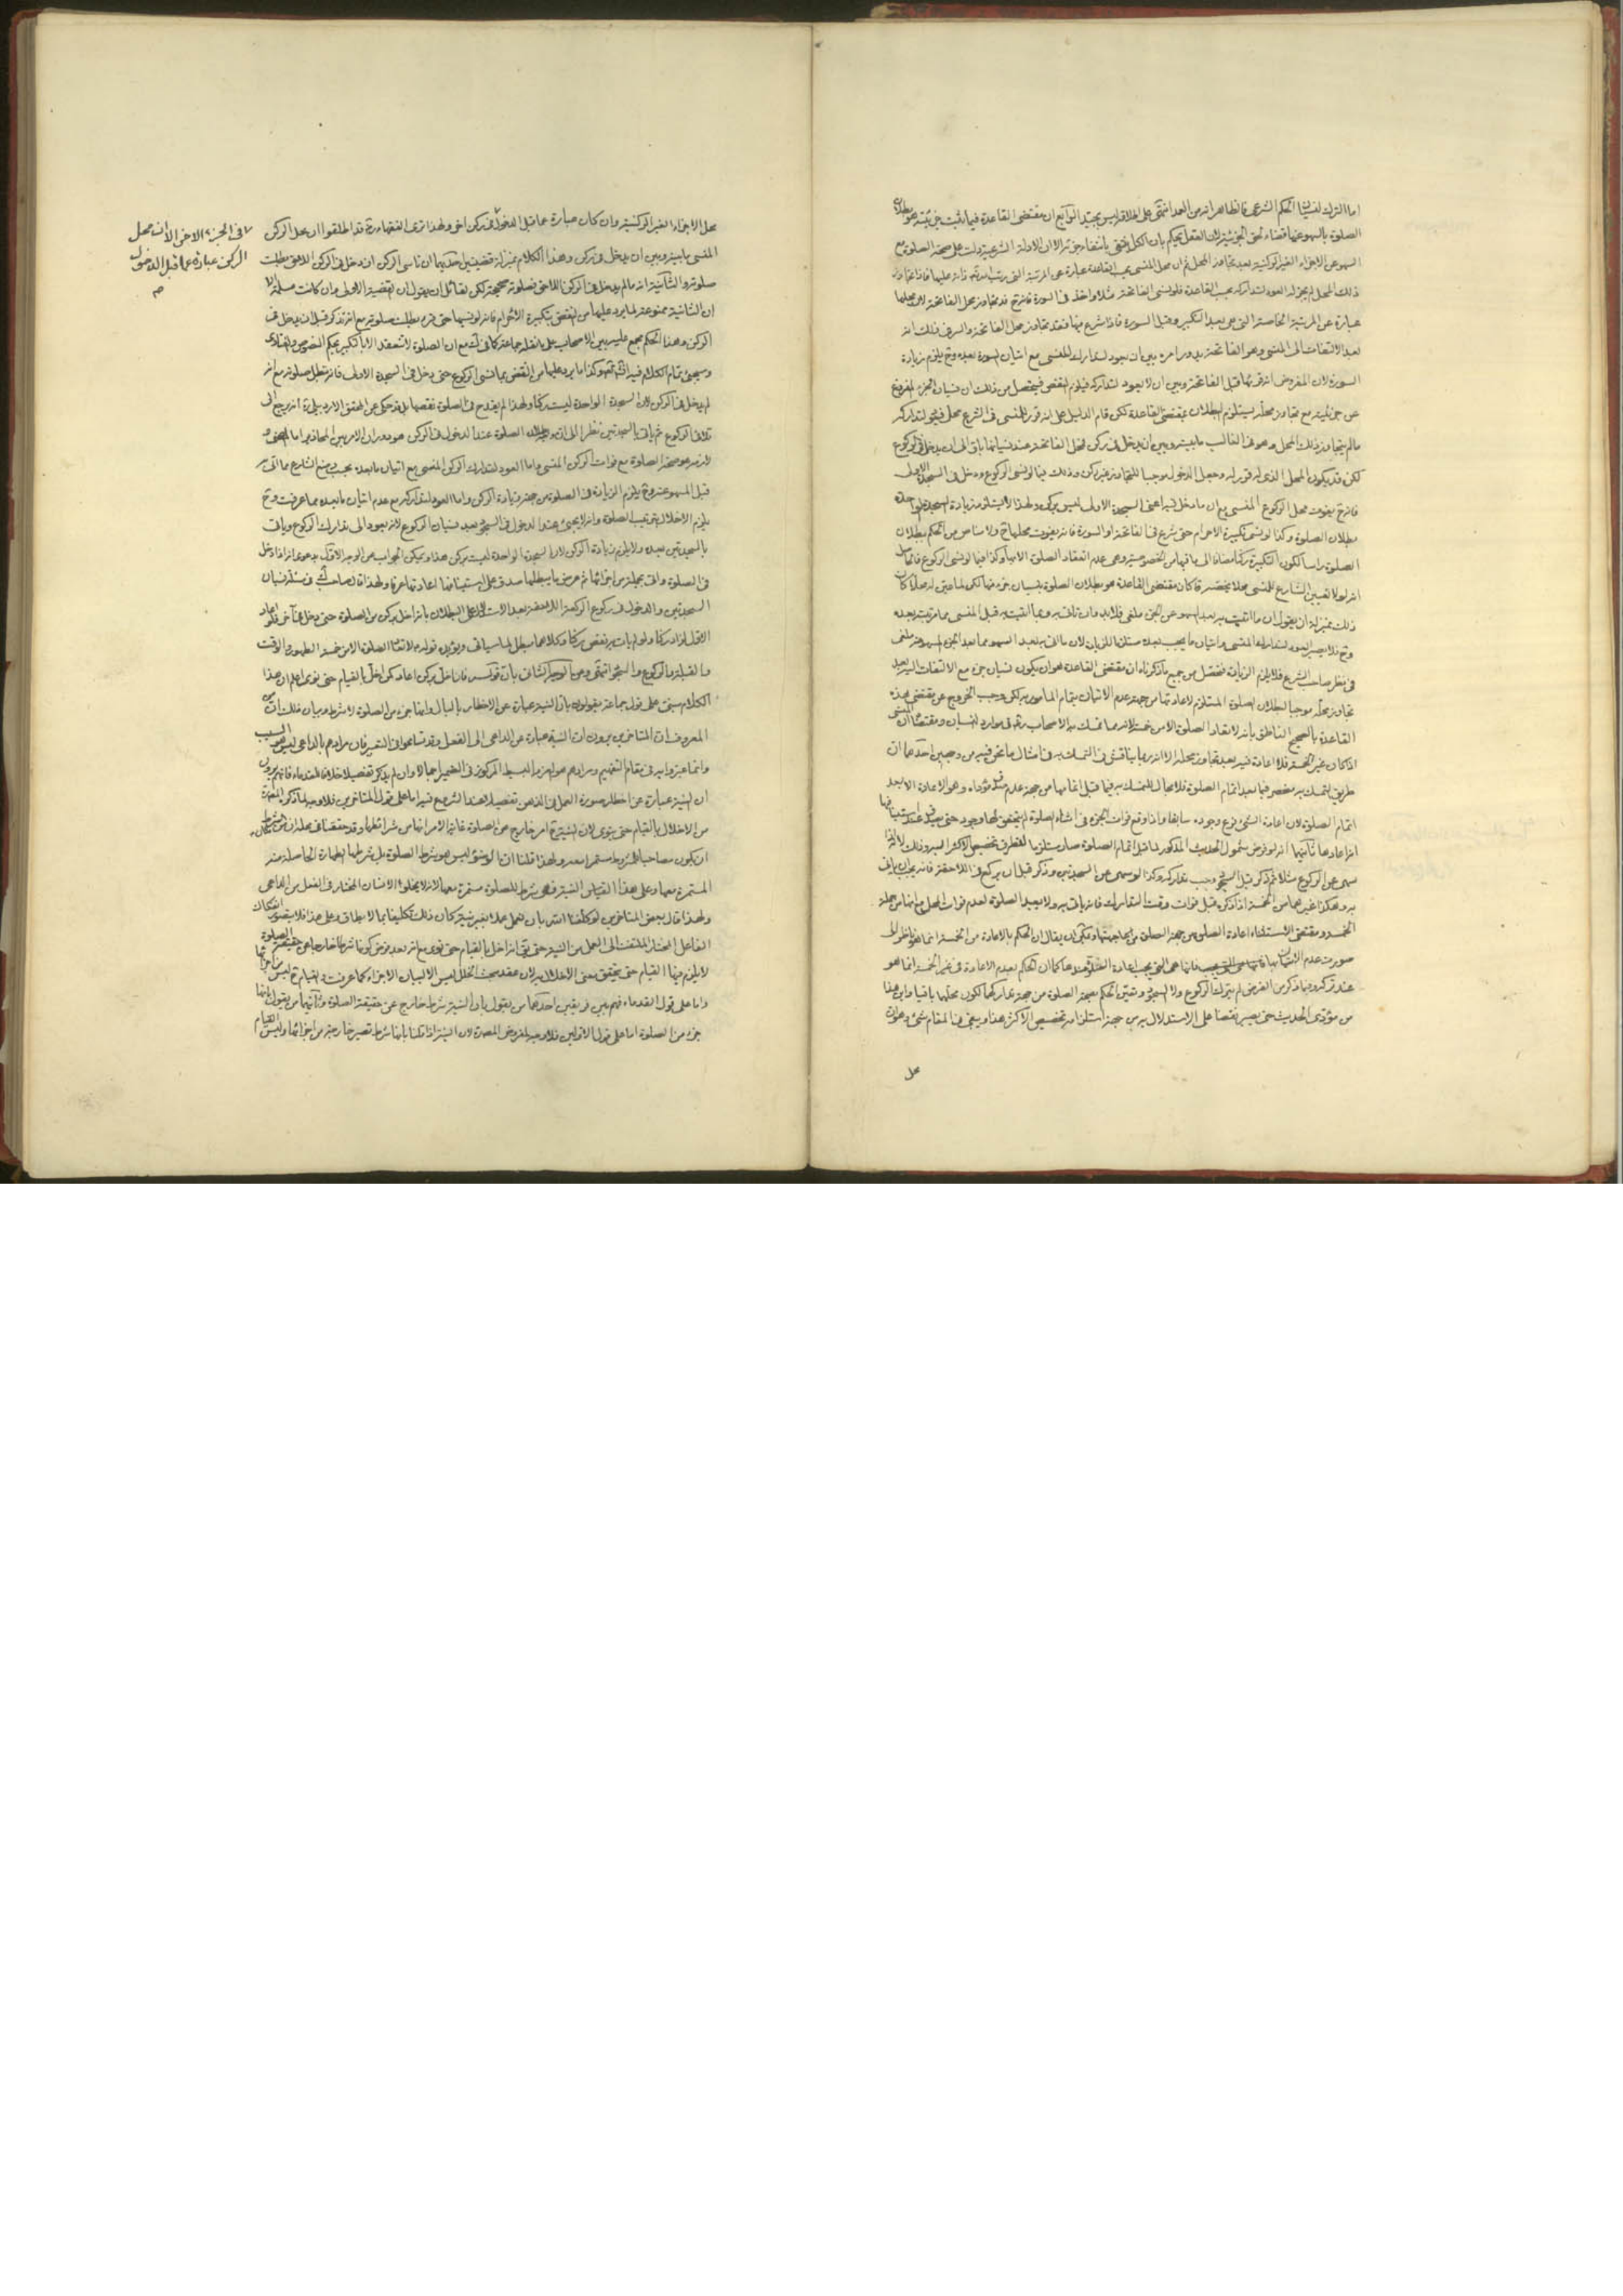 اما الترك نسيانا الحكم الشرعى فالظاهر انه من العمد انتهى على اطلاقه ليس بجيد الرابع ان مقتضى القاعدة فيما يثبت جزئيته هو بطلان
الصلوة بالسهو عنها قضاء لحق الجزئية لان العقل يحكم بان الكل ينتفى بانتفاء جزئه الا ان الادلة الشرعية دلت على صحة الصلوة مع
السهو عن الاجزاء الغير الركنية بعد تجاوز المحل ثم ان محل المنسى بحسب القاعدة عبارة عن المرتبة التى
ذلك المحل لم يجز له العود لتداركه بحسب القاعدة فلو نسى الفاتحة مثلا واخذ فى السورة فانه ح قد تجاوز محل الفاتحة لان محلها
عبارة عن المرتبة الخاصة التى هى بعد التكبير وقبل السورة فاذا شرع فيها فقد تجاوز محل الفاتحة والسر فى ذلك انه
بعد الالتفات الى المنسى وهو الفاتحة يدور امره بين ان يعود لتدارك المنسى مع اتيان السورة بعده وح يلزم زيادة
السورة لان المفروض انه اتى بها قبل الفاتحة وبين ان لا يعود لتداركه فيلزم النقص فيتحصل من ذلك ان نسيان الجزء المفروغ
عن جزئيته مع تجاوز محله يستلزم البطلان بمقتضى القاعدة لكن قام الدليل على انه قرر للمنسى فى الشرع محل فيجوز تداركه
مالم يتجاوز ذلك المحل وهو فى الغالب ما بينه وبين ان يدخل فى ركن فمحل الفاتحة عند نسيانها باق الى ان يدخل فى الركوع
لكن قد يكون المحل الذى قرر له وجعل الدخول موجبا للتجاوز غير ركن وذلك فيما لو نسى الركوع ودخل فى السجدة الاولى
فانه ح يفوت محل الركوع المنسى مع ان ما دخل فيه اعنى السجدة الاولى ليس بركن ولهذا لا تبطل بزيادة السجدة الواحدة
بطلان الصلوة وكذا لو نسى تكبيرة الاحرام حتى شرع فى الفاتحة او السورة فانه يفوت محلها ح ولا مناص من الحكم ببطلان
الصلوة راسا لكون التكبيرة ركنا مضافا الى ما فيها من الخصوصية وهى عدم انعقاد الصلوة الا بها وكذا فيما لو نسى الركوع
انه لولا تعيين الشارع للمنسى محلا يخصه كان مقتضى القاعدة هو بطلان الصلوة بنسيان جزء منها لكن لما عين له محلا كان
ذلك بمنزلة ان يقول ان ما اتيت به بعد السهو عن الجزء ملغى فلابد وان تاتى به وبما اتيت به قبل المنسى مما مرتبته بعده
فى نظر صاحب الشرع فلا يلزم الزيادة فتحصل من جميع ما ذكرناه ان مقتضى القاعدة هو ان يكون نسيان جزء مع الالتفات اليه بعد
تجاوز محله موجبا لبطلان الصلوة المستلزم لاعادتها من جهة عدم الاتيان بتمام المامور به لكن وجب الخروج عن مقتضى هذه
القاعدة بالصحيح الناطق بانه لا تعاد الصلوة الا من خمسة لانه مما تمسك به الاصحاب ره فى موارد النسيان ومقتضاه ان المنسى
اذا كان غير الخمسة فلا اعادة فيه بعد تجاوز محله الا انه ربما يناقش فى التمسك به فى امثال ما نحن فيه من وجهين احدهما ان
طريق التمسك به منحصر فيما بعد اتمام الصلوة فلا مجال للتمسك به فيما قبل اتمامها من جهة عدم صدق مؤداه وهو الاعادة الا بعد
اتمام الصلوة لان اعادة الشئ فرع وجوده سابقا واذا وقع فوات الجزء فى اثناء الصلوة لم يتحقق لها وجود حتى يصدق عند استينافها
انه اعادها ثانيهما انه لو فرض شمول الحديث المذكور لما قبل اتمام الصلوة صار مستلزما لتطرق تخصيص الاكثر اليه وذلك لانه لو
سهى عن الركوع مثلا ثم ذكر قبل السجود وجب تداركه وكذا لو سهى عن السجدتين وذكر قبل ان يركع فى اللاحقة فانه يجب ان ياتى
به وهكذا غيرهما من الخمسة اذا ذكره قبل فوات وقت التدارك فانه ياتى به ولا يعيد الصلوة لعدم فوات المحل
صورت عدم الاتيان بها فانها هى التى يجب اعادة الصلوة عندها كما ان الحكم بعدم الاعادة فى غير الخمسة انما هو
من مؤدى الحديث حتى يصير نقضا على الاستدلال به من جهة استلزامه تخصيص الاكثر هذا وينبغى فى المقام شئ وهو ان
محل
محل الاجزاء الغير الركنية وان كان عبارة عما قبل الدخول فى ركن اخر ولهذا ترى الفقهاء ره قد اطلقوا ان محل الركن
المنسى ما بينه وبين ان يدخل فى ركن وهذا الكلام بمنزلة قضيتين احديهما ان ناسى الركن اذا دخل فى الركن اللاحق بطلت
صلوته والثانية انه مالم يدخل فى الركن اللاحق فصلوته صحيحة لكن لقائل ان يقول ان القضية الاولى وان كانت مسلمة الا
ان الثانية ممنوعة لما يرد عليها من النقض بتكبيرة الاحرام فانه لو نسيها حتى قرء بطلت صلوته مع انه تذكر قبل ان يدخل فى
الركن وهذا الحكم مجمع عليه بين الاصحاب على ما نقله جماعة كما فى ك مع ان الصلوة لا تنعقد الا بالتكبير بحكم النصوص والفتاوى
وسيجئ تمام الكلام فيه انشاء الله تعالى وكذا ما يرد عليها من النقض بما نسى الركوع حتى دخل فى السجدة الاولى فانه تبطل صلوته مع انه
لم يدخل فى الركن لان السجدة الواحدة ليست ركنا ولهذا لم يقدح فى الصلوة نقصها بل قد حكى عن المحقق الاردبيلى ره انه يرجع الى
تلافى الركوع ثم ياتى بالسجدتين نظرا الى ان وجه بطلان الصلوة عند الدخول فى الركن هو دوران الامر بين المحاذير اما المضى و
لازمه هو صحة الصلوة مع فوات الركن المنسى واما العود لتدارك الركن المنسى مع اتيان ما بعده
قبل المسهو عنه وح يلزم الزيادة فى الصلوة من جهة زيادة الركن واما العود لتداركه مع عدم اتيان ما بعده مما عرفت وح
يلزم الاخلال بترتيب الصلوة وانه لا يجئ عند الدخول فى السجود بعد نسيان الركوع لانه يعود الى تدارك الركوع وياتى
بالسجدتين بعده ولا يلزم زيادة الركن لان السجدة الواحدة ليست بركن هذا ويمكن الجواب عن الوجه الاول بدعوى انه اذا دخل
فى الصلوة واتى بجملة من اجزائها ثم عرض ما يبطلها صدق على استينافها اعادتها عرفا ولهذا قال صاحب ك فى مسئلة نسيان
السجدتين والدخول فى ركوع الركعة اللاحقة بعد الاستدلال على البطلان بانه اخل بركن من الصلوة حتى دخل فى آخر فلو اعاد
الاول لزاد ركنا ولو لم يات به نقص ركنا وكلاهما مبطل لما سياتى ويؤيده قوله ع لا تعاد الصلوة الا من خمسة الطهور والوقت
والقبلة والركوع والسجود انتهى وعن الوجه الثانى بان قولك من اخل بركن اعاد كمن اخل بالقيام حتى نوى اعلم ان هذا
الكلام مبنى على قول جماعة يقولون بان النية عبارة عن الاخطار بالبال وانها جزء من الصلوة لا شرط وبيان ذلك ان من
المعروف ان المتاخرين يرون ان النية عبارة عن الداعى الى الفعل وقد تسامحوا فى التعبير فان مرادهم بالداعى ليس هو السبب
وانما عبروا به فى مقام التفهيم ومرادهم هو العزم البسيط المركوز فى الضمير اجمالا وان لم يذكر تفصيلا خلافا للقدماء فانهم يرون
ان النية عبارة عن اخطار صورة العمل فى الذهن تفصيلا عند الشروع فيه اما على قول المتاخرين فلا وجه لما ذكره المص ره
من الاخلال بالقيام حتى ينوى لان النية ح امر خارج عن الصلوة غاية الامر انها من شرائطها وقد حققنا فى محله ان من شرط الشرط
ان يكون مصاحبا للمشروط مستمرا معه ولهذا قلنا ان الوضوء ليس هو شرط الصلوة بل شرطها الطهارة الحاصلة منه
المستمرة معها وعلى هذا القياس النية فهى شرط للصلوة مستمرة معها لانه لا يخلو الانسان المختار فى الفعل من الداعى
ولهذا قال بعض المتاخرين لو كلفنا الله بان نعمل عملا بغير نية كان ذلك تكليفا بما لا يطاق وعلى هذا فلا يتصور انفكاك
الفاعل المختار الملتفت الى العمل من النية حتى يق انه اخل بالقيام حتى نوى مع انه بعد فرض كونها شرطا خارجا عن حقيقة الصلوة
لا يلزم فيها القيام حتى يتحقق معنى الاخلال به لان عقد مبحث الخلل ليس الا لبيان الاجزاء كما عرفت والقيام ح ليس من اجزائها
واما على قول القدماء فهم بين فريقين احدهما من يقول بان النية شرط خارج عن حقيقة الصلوة وثانيهما من يقول بانها
جزء من الصلوة اما على قول الاولين فلا وجه لفرض المصره لان النية اذا قلنا بانها شرط تصير خارجة من اجزائها وليس القيام
فى الجزء الاخر الا ان محل
الركن عبارة عما قبل الدخول